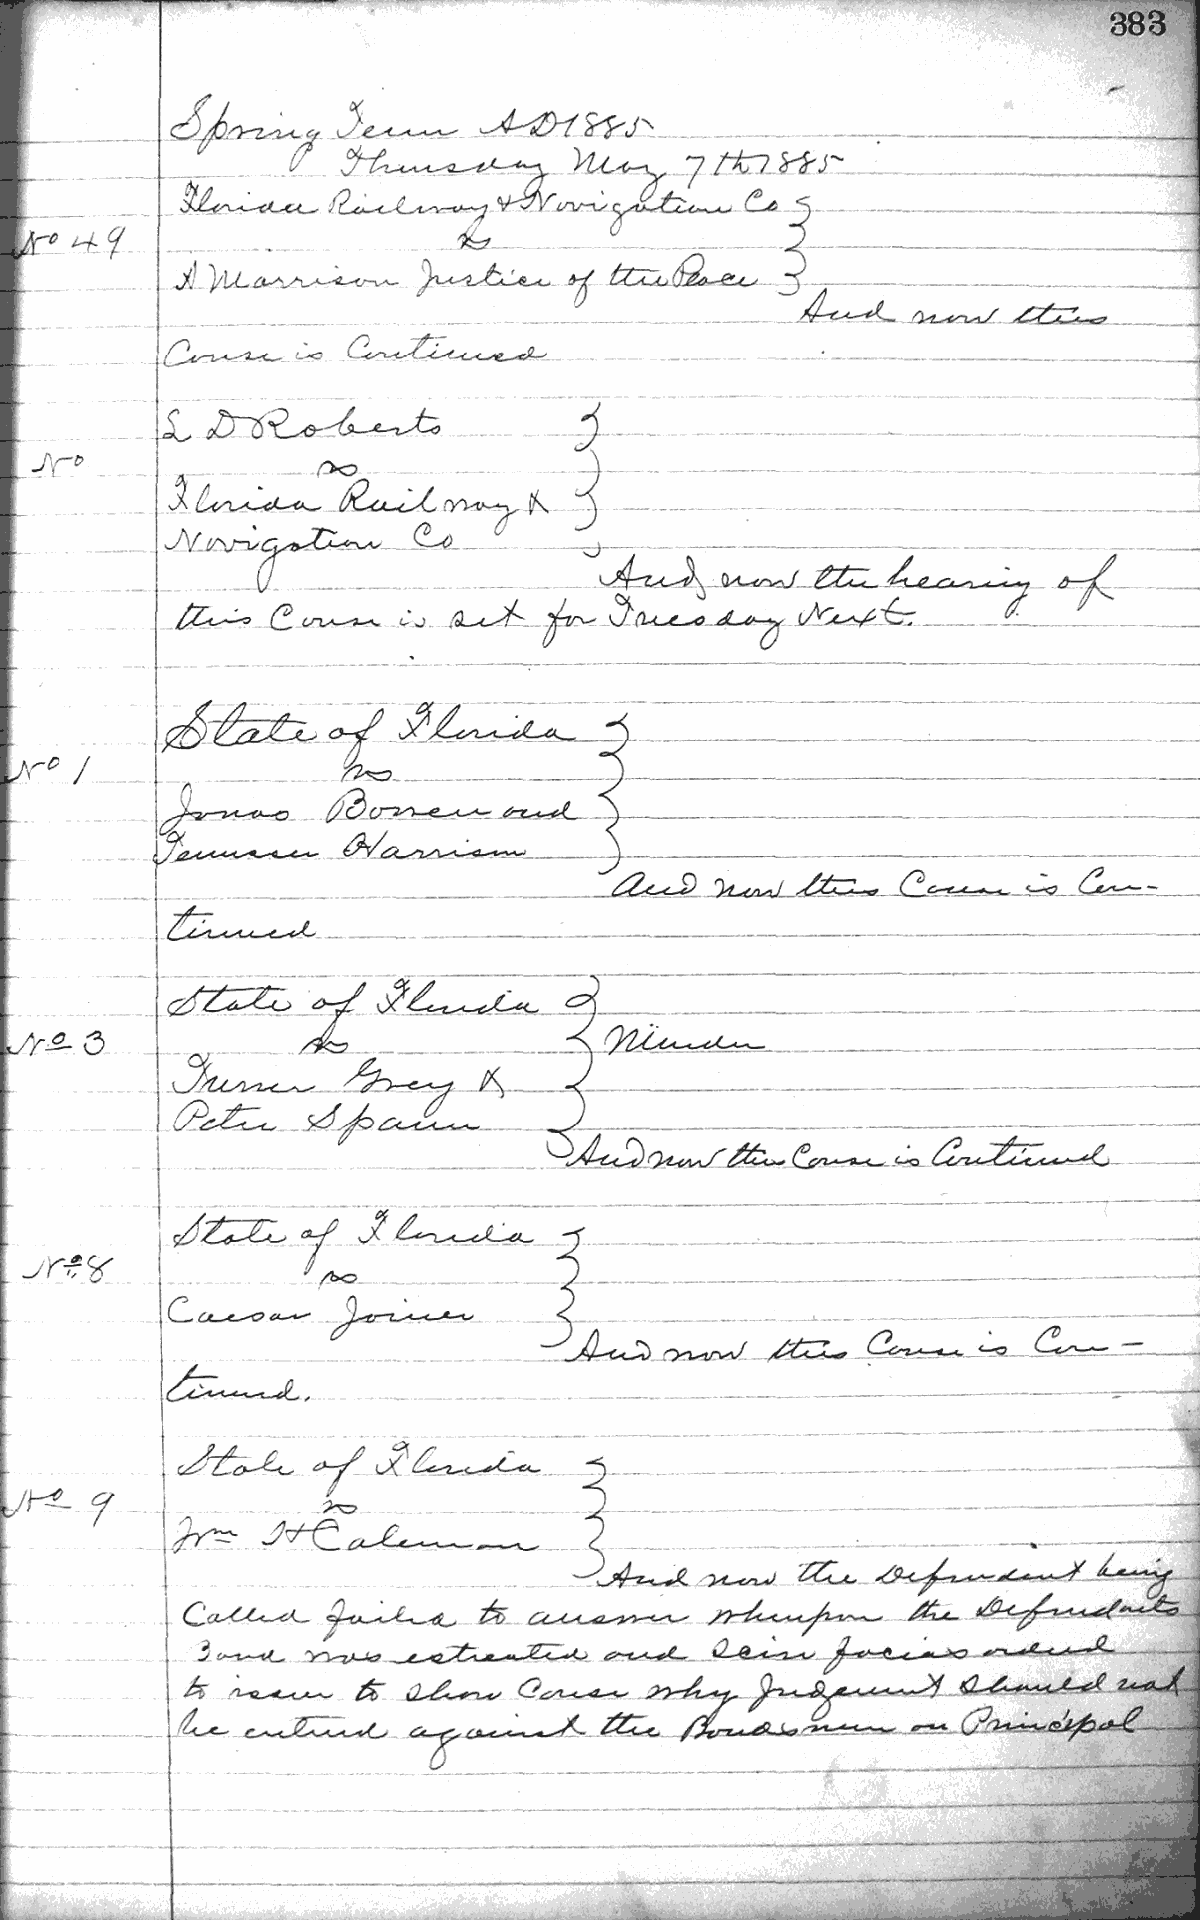 383
Spring Term AD 1885
Thursday May 7th 1885
Florida Railway & Navigation Co
No 49 vs
A Marrison Justice of the Peace
And now this
Cause is Continued
L D Roberts
No vs
Florida Railway &
Navigation Co
And now the hearing of
this Cause is set for Tuesday Next.
State of Florida
No 1 vs
Jonas Bowen and
Harrison
And now this Cause is Con-
tinued
State of Florida
No 3 vs Murder
Turner Grey &
Peter Spann
And now this Cause is Continued
State of Florida
No 8 vs
Caesar Joiner
And now this Cause is Con-
tinued.
State of Florida
No 9 vs
Wm H Coleman
And now the Defendant being
Called failed to answer whereupon the Defendants
Bond was estreated and Scire facias ordered
to issue to show Cause why Judgement should not
be entered against the Bondsmen on Principal